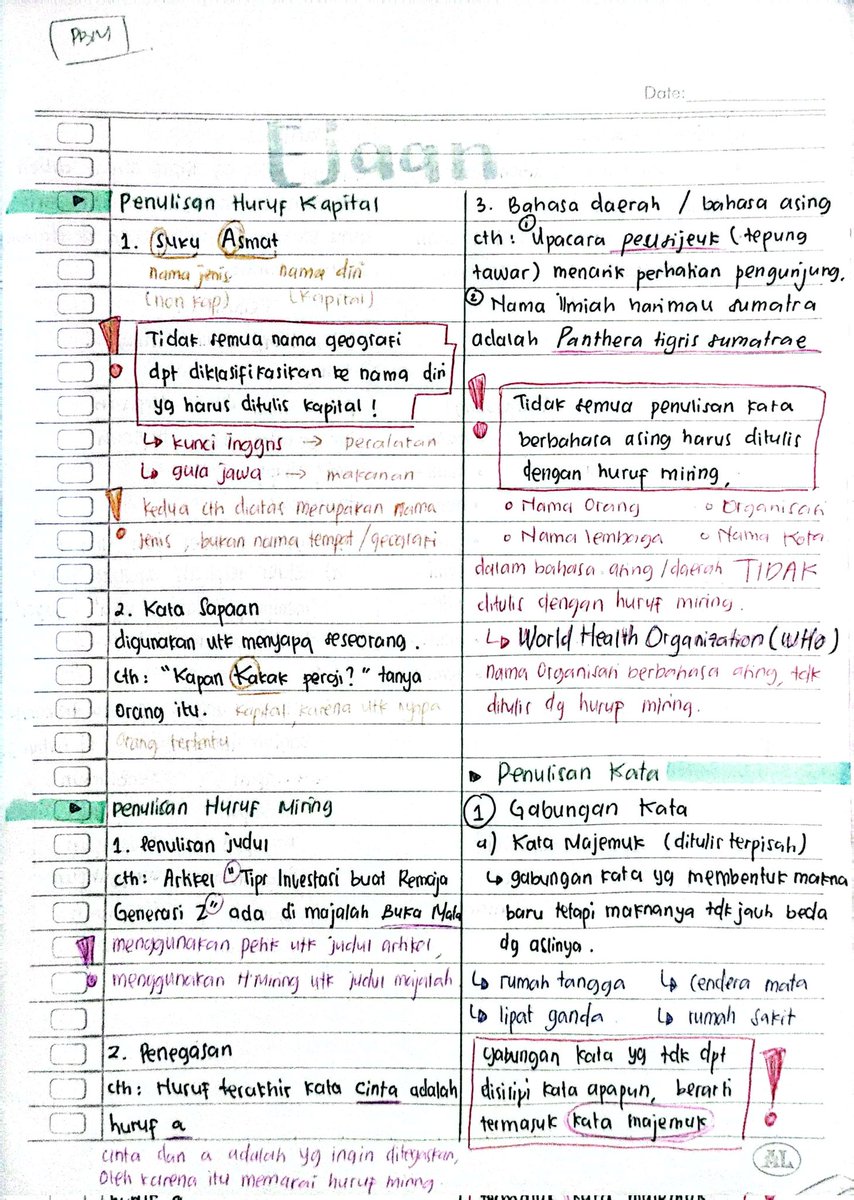 PBM
Date:
Ejaan
Penulisan Huruf Kapital
1. Suku Asmat
nama jenis nama diri
(non kap) (Kapital)
Tidak semua nama geografi
dpt diklasifikasikan ke nama diri
yg harus ditulis kapital!
↳ kunci inggris → peralatan
↳ gula jawa → makanan
kedua cth diatas merupakan nama
jenis, bukan nama tempat/geografi
2. Kata Sapaan
digunakan utk menyapa seseorang.
cth: "Kapan Kakak pergi?" tanya
orang itu. kapital, karena utk nyapa
orang tertentu
Penulisan Huruf Miring
1. Penulisan judul
cth: Artikel "Tips Investasi buat Remaja
Generasi Z" ada di majalah Buka Mata
menggunakan petik utk judul artikel,
menggunakan H'Miring utk judul majalah
2. Penegasan
cth: Huruf terakhir kata cinta adalah
huruf a
cinta dan a adalah yg ingin ditegaskan,
oleh karena itu memakai huruf miring
3. Bahasa daerah / bahasa asing
cth: ① Upacara peusijeuk (tepung
tawar) menarik perhatian pengunjung.
② Nama ilmiah harimau sumatra
adalah Panthera tigris sumatrae
Tidak semua penulisan kata
berbahasa asing harus ditulis
dengan huruf miring,
o Nama Orang o Organisasi
o Nama lembaga o Nama Kota
dalam bahasa asing/daerah TIDAK
ditulis dengan huruf miring.
↳ World Health Organization (WHO)
nama Organisasi berbahasa asing, tdk
ditulis dg huruf miring.
Penulisan Kata
① Gabungan Kata
a) Kata Majemuk (ditulis terpisah)
↳ gabungan kata yg membentuk makna
baru tetapi maknanya tdk jauh beda
dg aslinya.
↳ rumah tangga ↳ cendera mata
↳ lipat ganda ↳ rumah sakit
gabungan kata yg tdk dpt
disisipi kata apapun, berarti
termasuk kata majemuk
AL